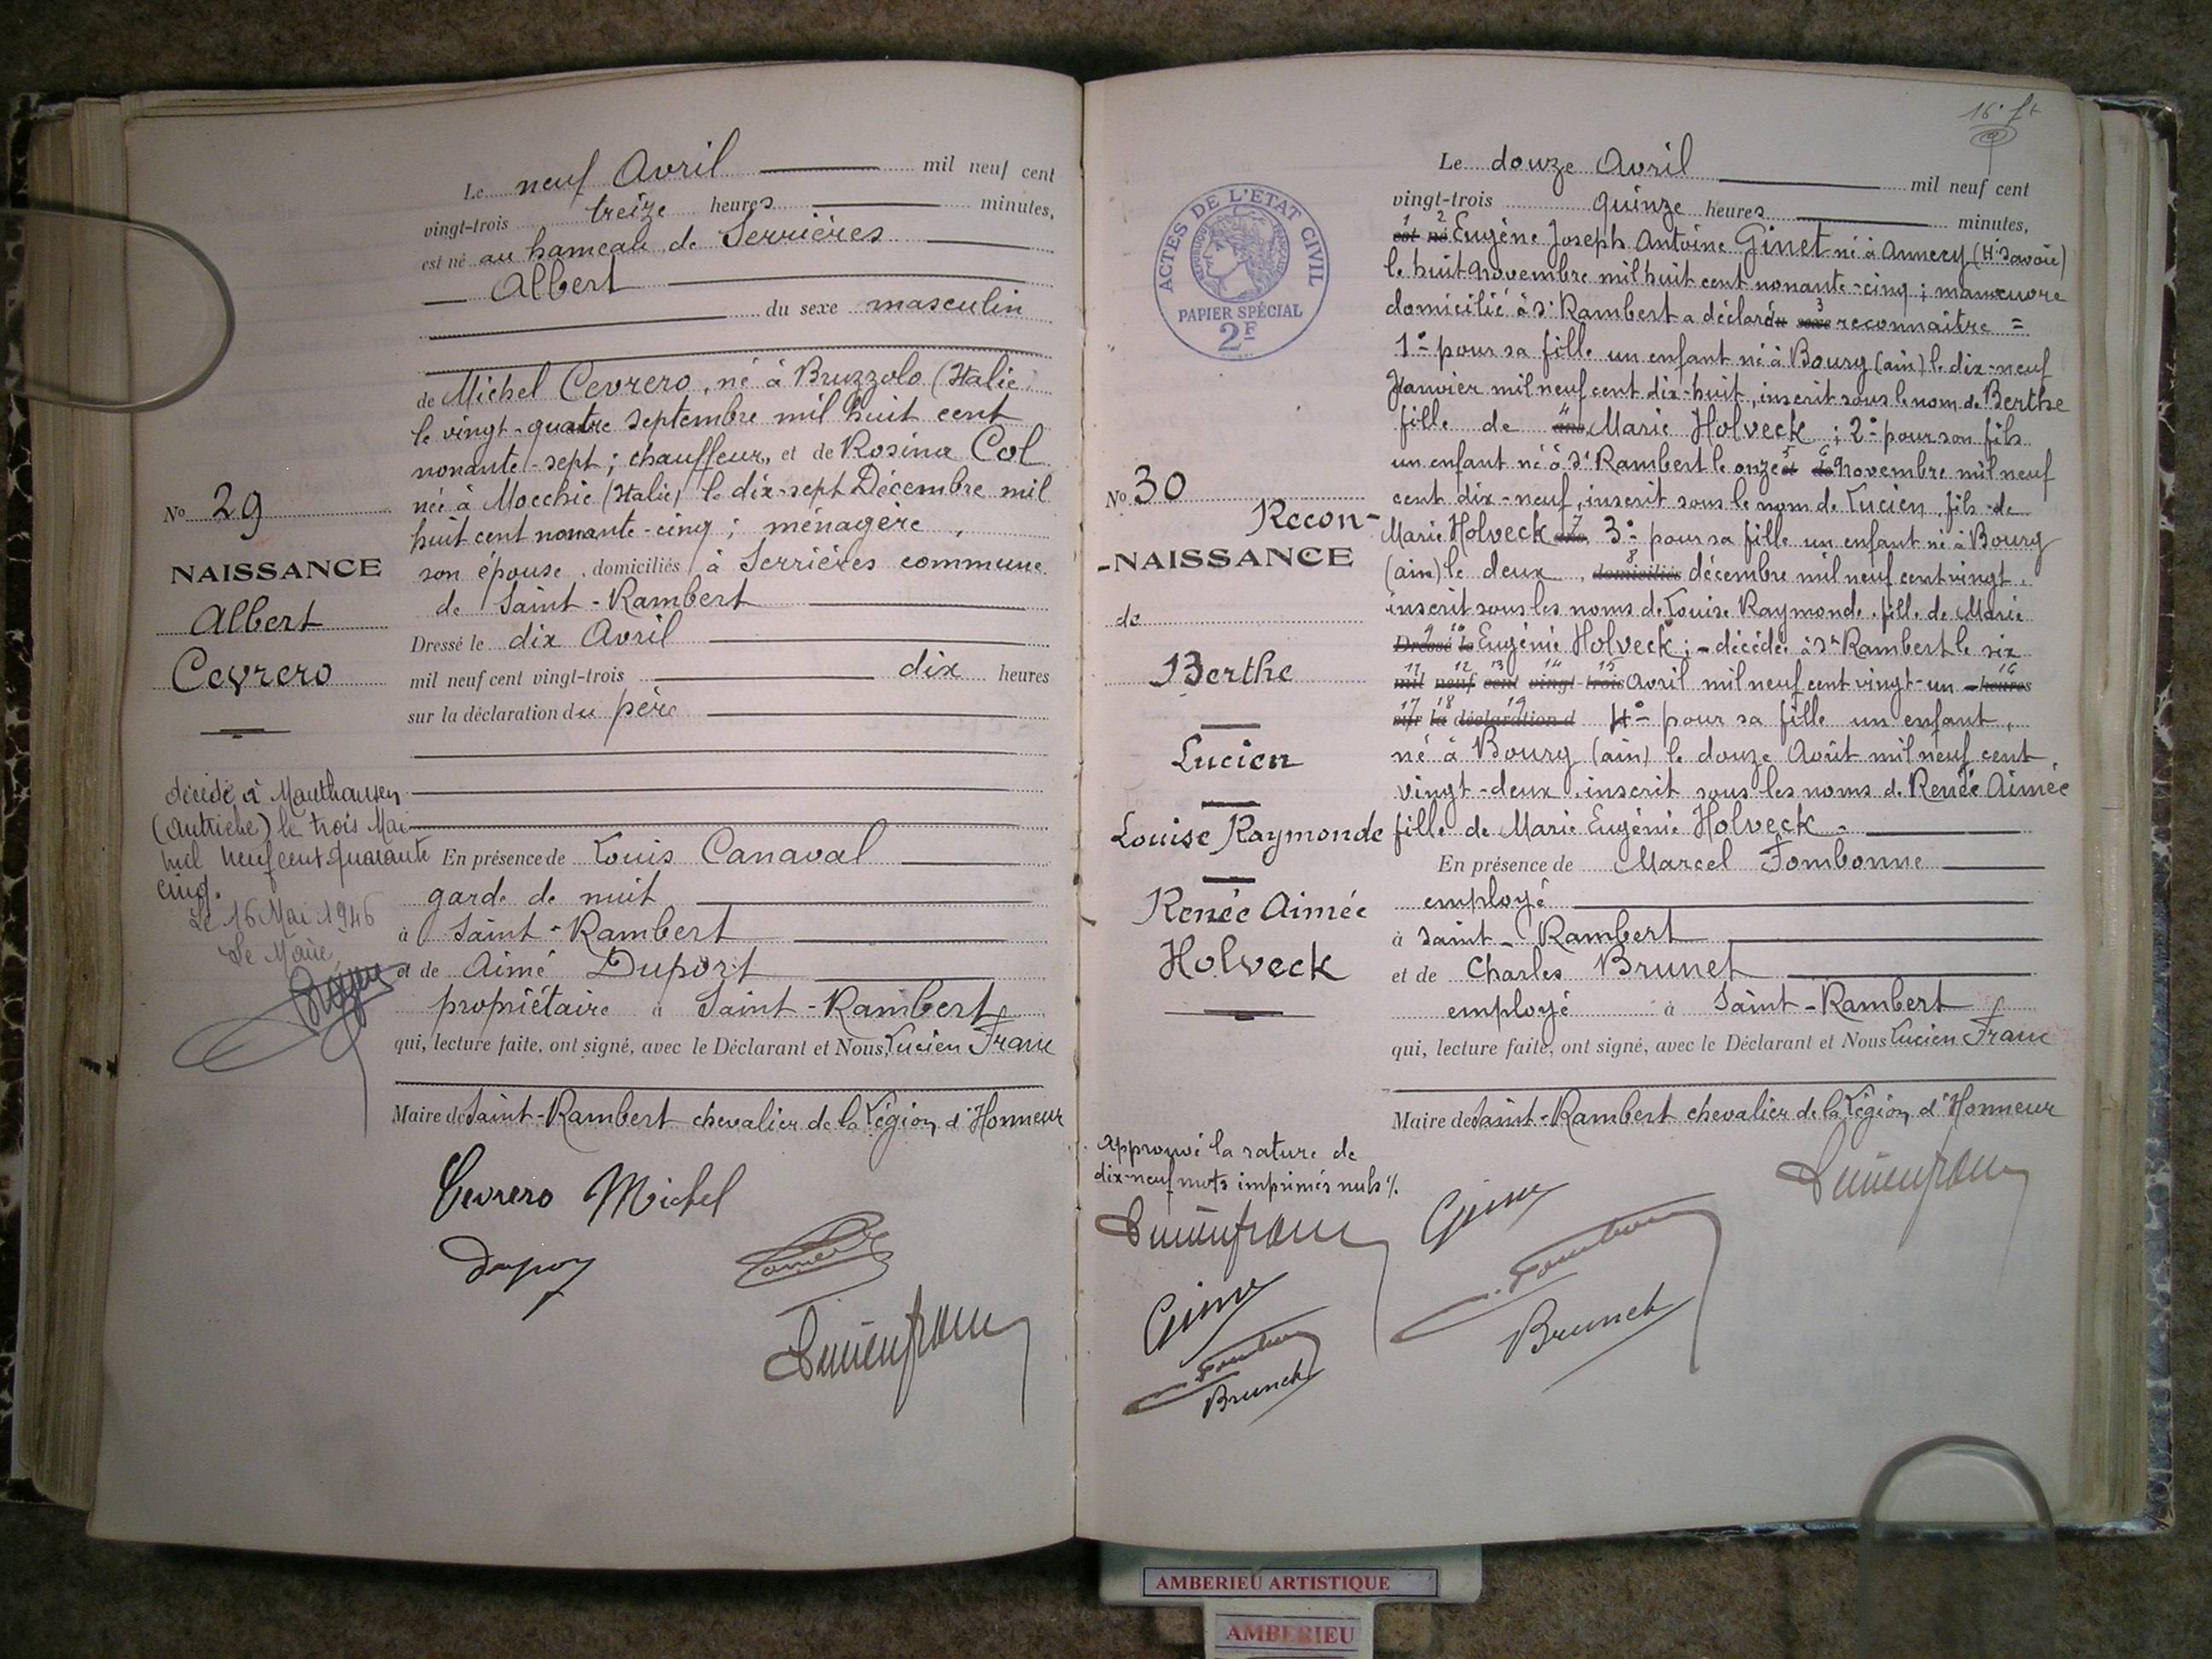 Le neuf Avril mil neuf cent
vingt-trois treize heures minutes,
est né au hameau de Serrières
Albert
du sexe masculin
de Michel Cevrero, né à Bruzzolo (Italie)
le vingt-quatre septembre mil huit cent
nonante-sept ; chauffeur, et de Rosina Col
née à Mocchie (Italie) le dix-sept Décembre mil
huit cent nonante-cinq ; ménagère,
son épouse, domiciliés à Serrières commune
de Saint-Rambert
Dressé le dix Avril
mil neuf cent vingt-trois dix heures
sur la déclaration du père
En présence de Louis Canaval
garde de nuit
à Saint-Rambert
et de Aimé Duport
propriétaire à Saint-Rambert
qui, lecture faite, ont signé, avec le Déclarant et Nous, Lucien Franc
Maire de Saint-Rambert chevalier de la Légion d'Honneur
Cevrero Michel
No 29
NAISSANCE
Albert
Cevrero
décédé à Mauthausen
(Autriche) le trois Mai
mil neuf cent quarante
cinq.
Le 16 Mai 1946
Le Maire,
16e ft
ACTES DE L'ETAT CIVIL
REPUBLIQUE FRANÇAISE
PAPIER SPÉCIAL
2F
No 30
Recon-
-NAISSANCE
de
Berthe
Lucien
Louise Raymonde
Renée Aimée
Holveck
Le douze Avril mil neuf cent
vingt-trois quinze heures minutes,
1 2
est né Eugène Joseph Antoine Ginet né à Annecy (Hte Savoie)
le huit novembre mil huit cent nonante-cinq ; manœuvre
domicilié à St Rambert a déclaré du sexe 3 reconnaître =
1° pour sa fille un enfant né à Bourg (ain) le dix-neuf
Janvier mil neuf cent dix-huit, inscrit sous le nom de Berthe
fille de 4 ans, Marie Holveck ; 2° pour son fils
un enfant né à St Rambert le onze 5 et 6 de novembre mil neuf
cent dix-neuf, inscrit sous le nom de Lucien, fils de
Marie Holveck 7 ans, 3° pour sa fille un enfant né à Bourg
(ain) le deux, 8 domiciliés décembre mil neuf cent vingt,
inscrit sous les noms de Louise Raymonde, fille de Marie
9 10
Dressé le Eugénie Holveck ; - décédée à St Rambert le six
11 12 13 14 15 16
mil neuf cent vingt-trois Avril mil neuf cent vingt-un heures
17 18 19
sur la déclaration d 4° pour sa fille un enfant,
né à Bourg (ain) le douze Août mil neuf cent
vingt-deux, inscrit sous les noms de Renée Aimée
fille de Marie Eugénie Holveck -
En présence de Marcel Fombonne
employé
à Saint-Rambert
et de Charles Brunet
employé à Saint-Rambert
qui, lecture faite, ont signé, avec le Déclarant et Nous Lucien Franc
Maire de Saint-Rambert chevalier de la Légion d'Honneur
Approuvé la rature de
dix-neuf mots imprimés nuls %.
Lucien Franc
Ginet
Brunet
AMBERIEU ARTISTIQUE
AMBERIEU